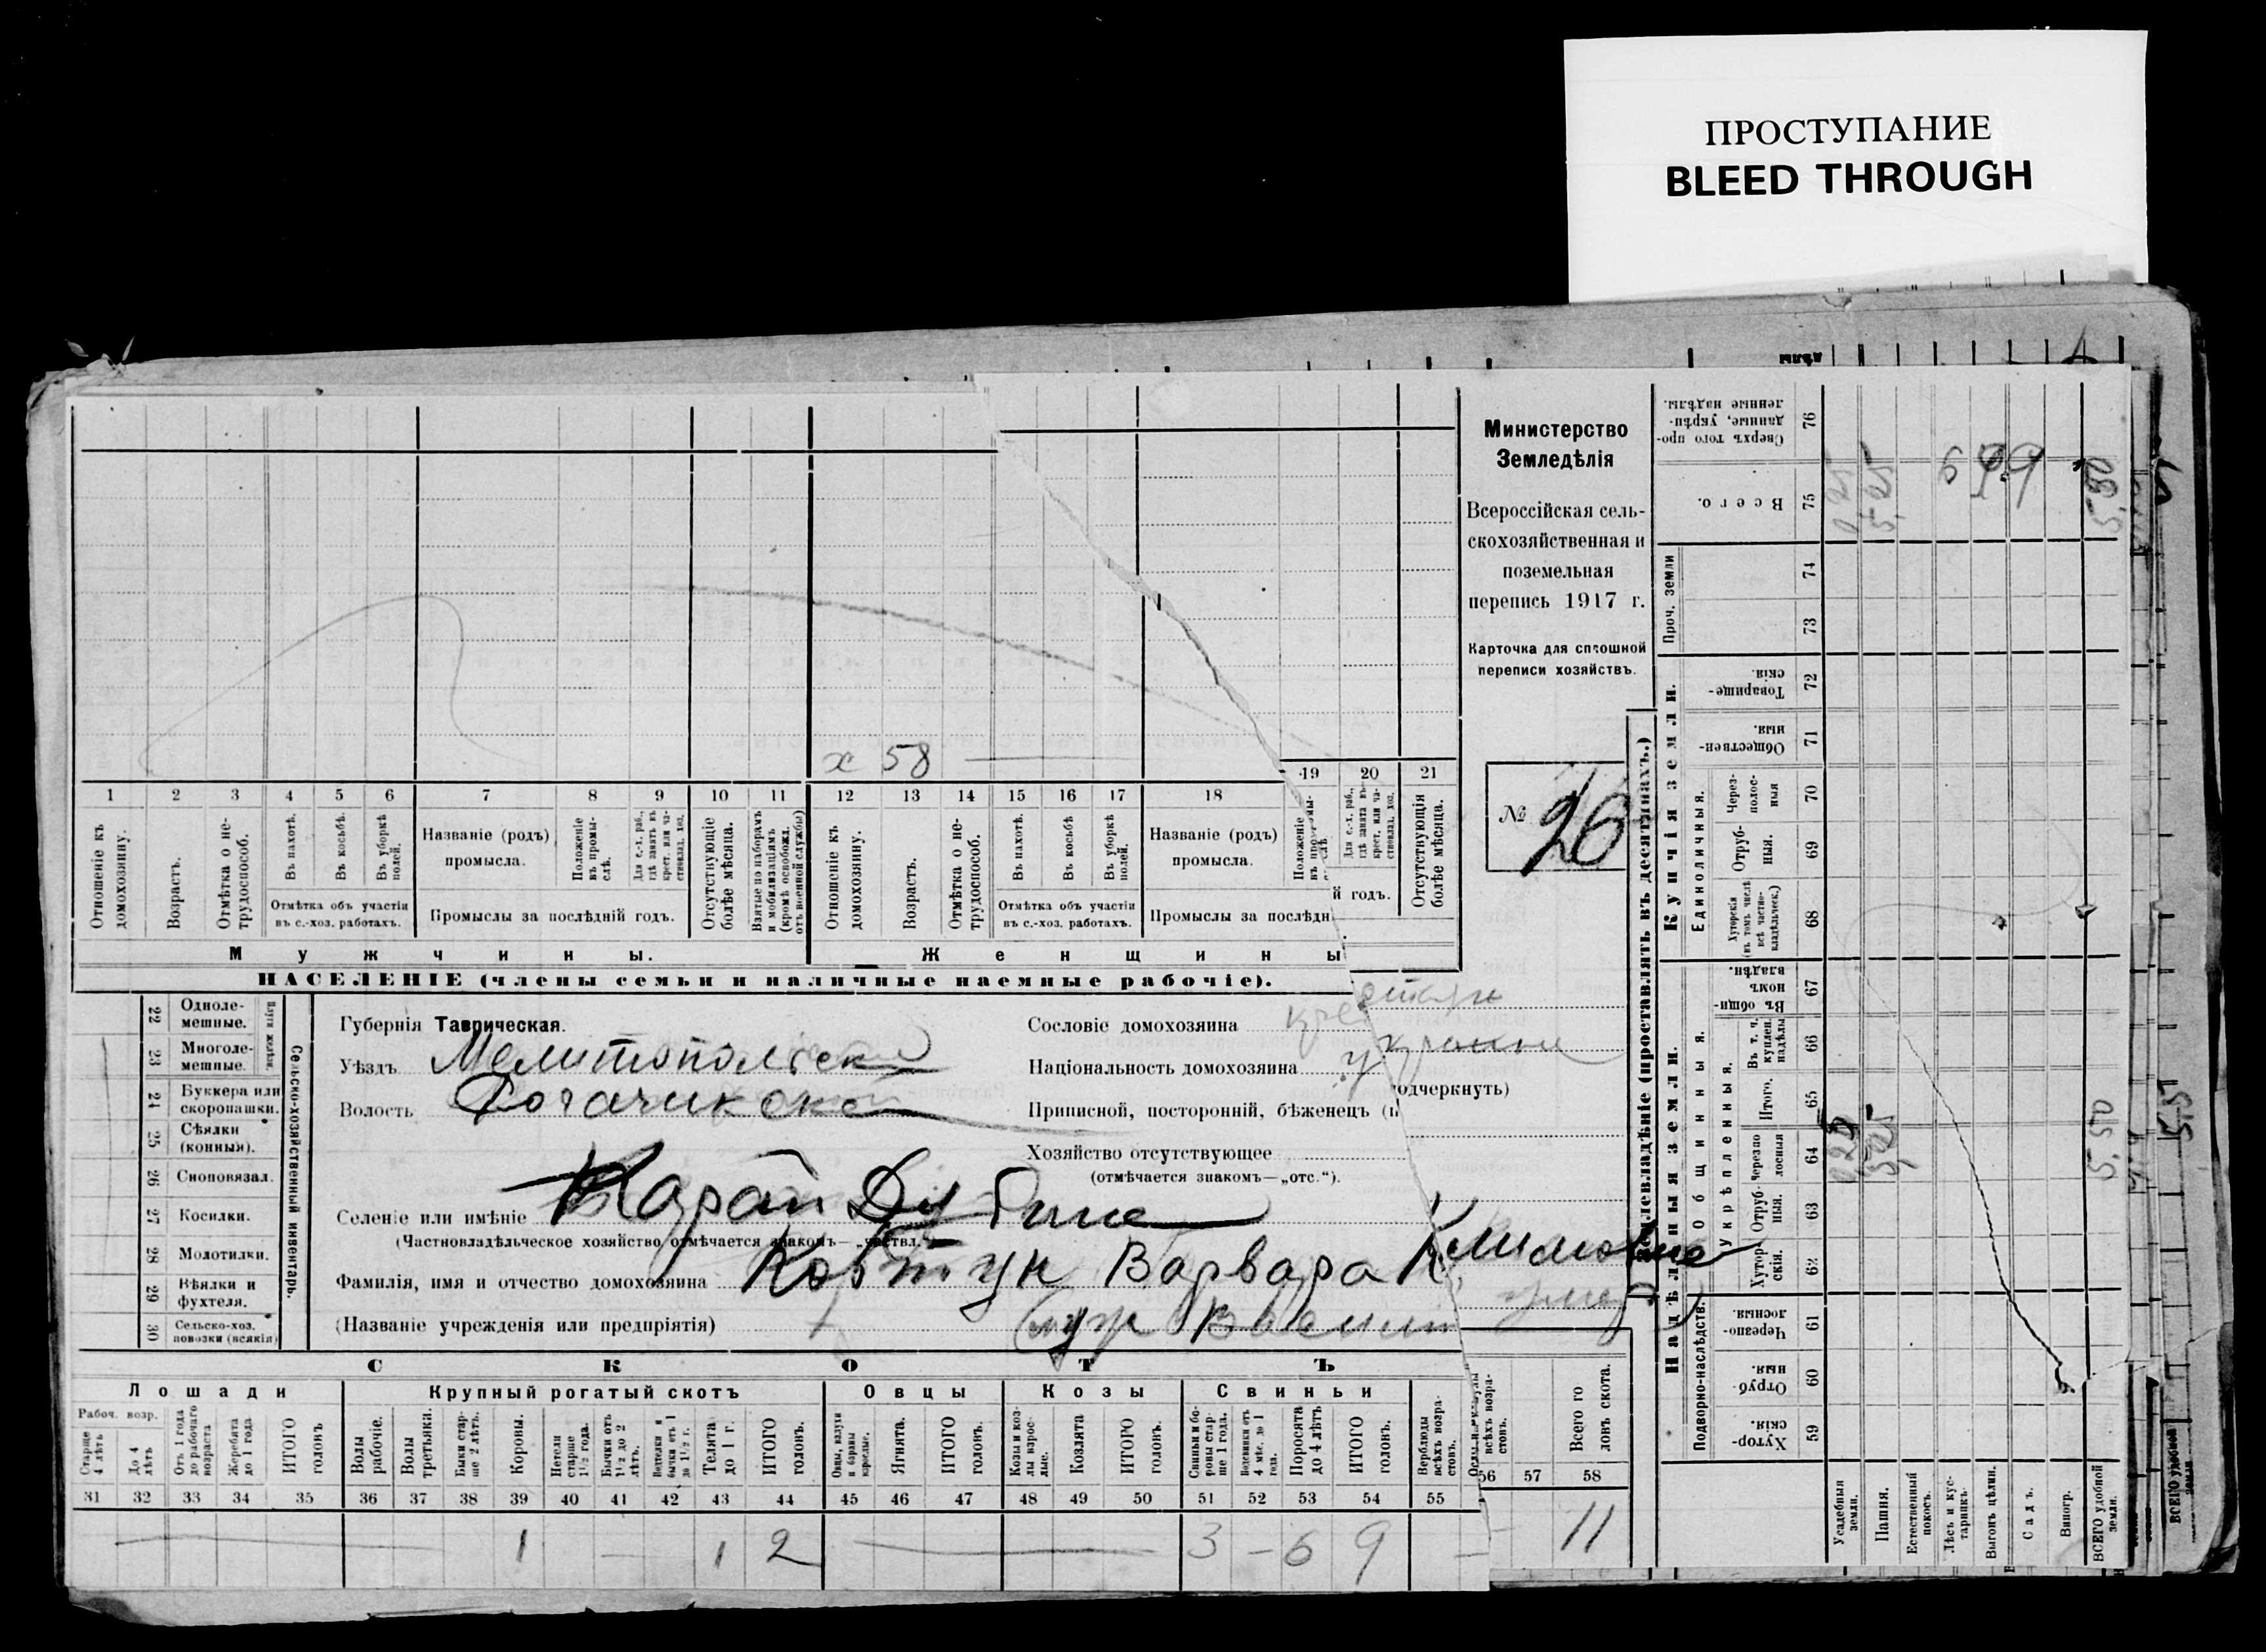 ПРОСТУПАНИЕ
BLEED THROUGH
Министерство
Земледѣлія
Всероссійская сель-
скохозяйственная и
поземельная
перепись 1917 г.
Карточка для сплошной
переписи хозяйствъ.
№ 26
х 58
1 2 3 4 5 6 7 8 9 10 11 12 13 14 15 16 17 18 19 20 21
Отношеніе къ домохозяину.
Возрастъ.
Отмѣтка о не-трудоспособ.
Въ пахотѣ.
Въ косьбѣ.
Въ уборкѣ полей.
Отмѣтка объ участіи
въ с.-хоз. работахъ.
Названіе (родъ)
промысла.
Положеніе въ промы-слѣ.
Для с.-х. раб., гдѣ занятъ въ крест. или ча-стновлад. хоз.
Промыслы за послѣдній годъ.
Отсутствующіе болѣе мѣсяца.
Взятые по наборамъ и мобилизаціямъ (кромѣ освобожд. отъ военной службы)
Отношеніе къ домохозяину.
Возрастъ.
Отмѣтка о не-трудоспособ.
Въ пахотѣ.
Въ косьбѣ
Въ уборкѣ полей.
Отмѣтка объ участіи
въ с.-хоз. работахъ.
Названіе (родъ)
промысла.
Положеніе
Для с.-х. раб., гдѣ занята въ крест. или ча-стновлад. хоз.
Промыслы за послѣдн й годъ.
Отсутствующія болѣе мѣсяца.
Мужчины.
Женщины
НАСЕЛЕНІЕ (члены семьи и наличные наемные рабочіе).
22 Одноле-мешные.
23 Многоле-мешные.
24 Буккера или скоропашки.
25 Сѣялки (конныя).
26 Сноповязал.
27 Косилки.
28 Молотилки.
29 Вѣялки и фухтеля.
30 Сельско-хоз. повозки (всякія)
Сельско-хозяйственный инвентарь.
Губернія Таврическая.
Уѣздъ Мелитопольск
Волость Рогачикской
Селеніе или имѣніе Карай Дубине
(Частновладѣльческое хозяйство отмѣчается знакомъ— „частвл.
Фамилія, имя и отчество домохозяина Ковтун Варвара Климовне
(Названіе учрежденія или предпріятія) (муж
Сословіе домохозяина
Національность домохозяина
Приписной, посторонній, бѣженец (п одчеркнуть)
Хозяйство отсутствующее
(отмѣчается знакомъ—„отс.“).
СКОТЪ
Лошади
Крупный рогатый скотъ
Овцы
Козы
Свиньи
Рабоч. возр.
Старше 4 лѣтъ
До 4 лѣтъ
Отъ 1 года до рабочаго возраста
Жеребята до 1 года
ИТОГО головъ
Волы рабочіе.
Волы третьяки.
Быки стар-ше 2 лѣтъ.
Коровы.
Нетели старше 1½ года.
Бычки отъ 1½ до 2 лѣтъ.
Телки и бычки отъ 1 до 1½ г.
Телята до 1 г.
ИТОГО головъ.
Овцы, валухи и бараны взрослые.
Ягнята.
ИТОГО головъ.
Козы и коз-лы взрос-лые.
Козлята
ИТОГО головъ.
Свиньи и бо-ровы стар-ше 1 года.
Поросята до 4 лѣтъ
ИТОГО головъ.
Верблюды всѣхъ возра-стовъ.
всѣхъ возра-стовъ.
Всего го ловъ скота.
31 32 33 34 35 36 37 38 39 40 41 42 43 44 45 46 47 48 49 50 51 52 53 54 55 56 57 58
1 1 2 3 – 6 9 – 11
Землевладѣніе (проставлять въ десятинахъ.)
Надѣльныя земли.
Купчія земли.
Проч. земли
Подворно-наслѣдств.
Общинныя.
Укрѣпленныя.
Единоличныя.
59 Хутор-скія.
60 Отруб-ныя.
61 Черезпо-лосныя.
62 Хутор-скія.
63 Отруб-ныя.
64 Черезпо лосныя
65 Итого.
66 Въ т. ч. куплен. надѣлы
67 Въ общи-номъ владѣн.
68 Хуторскія (въ томъ числѣ всѣ частно-владѣльческ.)
69 Отруб-ныя.
70 Через-полос-ныя
71 Обществен-ныя.
72 Товарище-скія.
73
74
75 Всего.
76 Сверхъ того про-данные, укрѣп-ленные надѣлы.
Усадебныя земли.
Пашня.
Естественный покосъ.
Лѣсъ и кус-тарникъ.
Выгонъ цѣлин.
Садъ.
Виногр.
ВСЕГО удобной земли.
5,50
ВСЕГО удобной